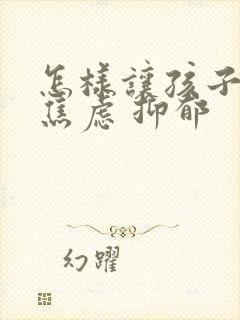 怎樣讓孩子
焦慮抑郁
幻躍